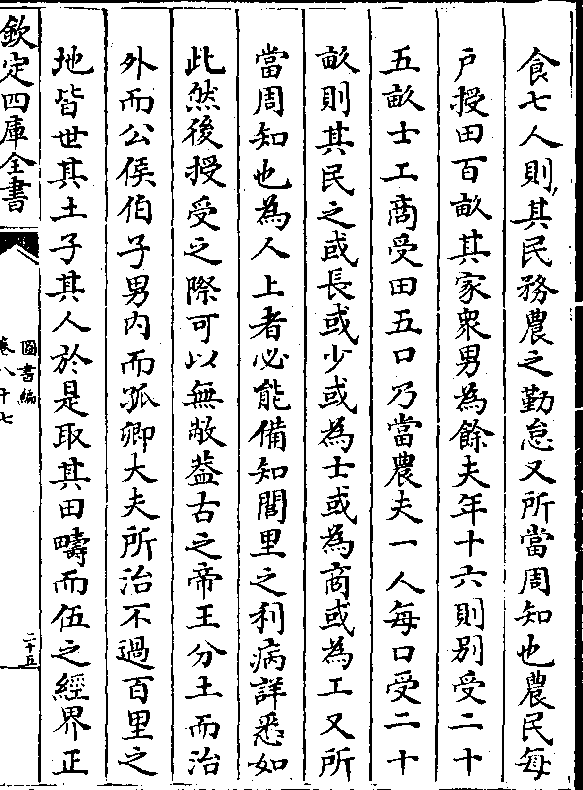 食七人則其民務農之勤怠又所當周知也農民每
戸授田百畝其家衆男為餘夫年十六則别受二十
五畝士工商受田五口乃當農夫一人每口受二十
畝則其民之或長或少或為士或為商或為工又所
當周知也為人上者必能備知閭里之利病詳悉如
此然後授受之際可以無敝葢古之帝王分土而治
外而公侯伯子男内而孤卿大夫所治不過百里之
地皆世其土子其人於是取其田疇而伍之經界正
欽定四庫全書
圖書編
卷八十七
二十五